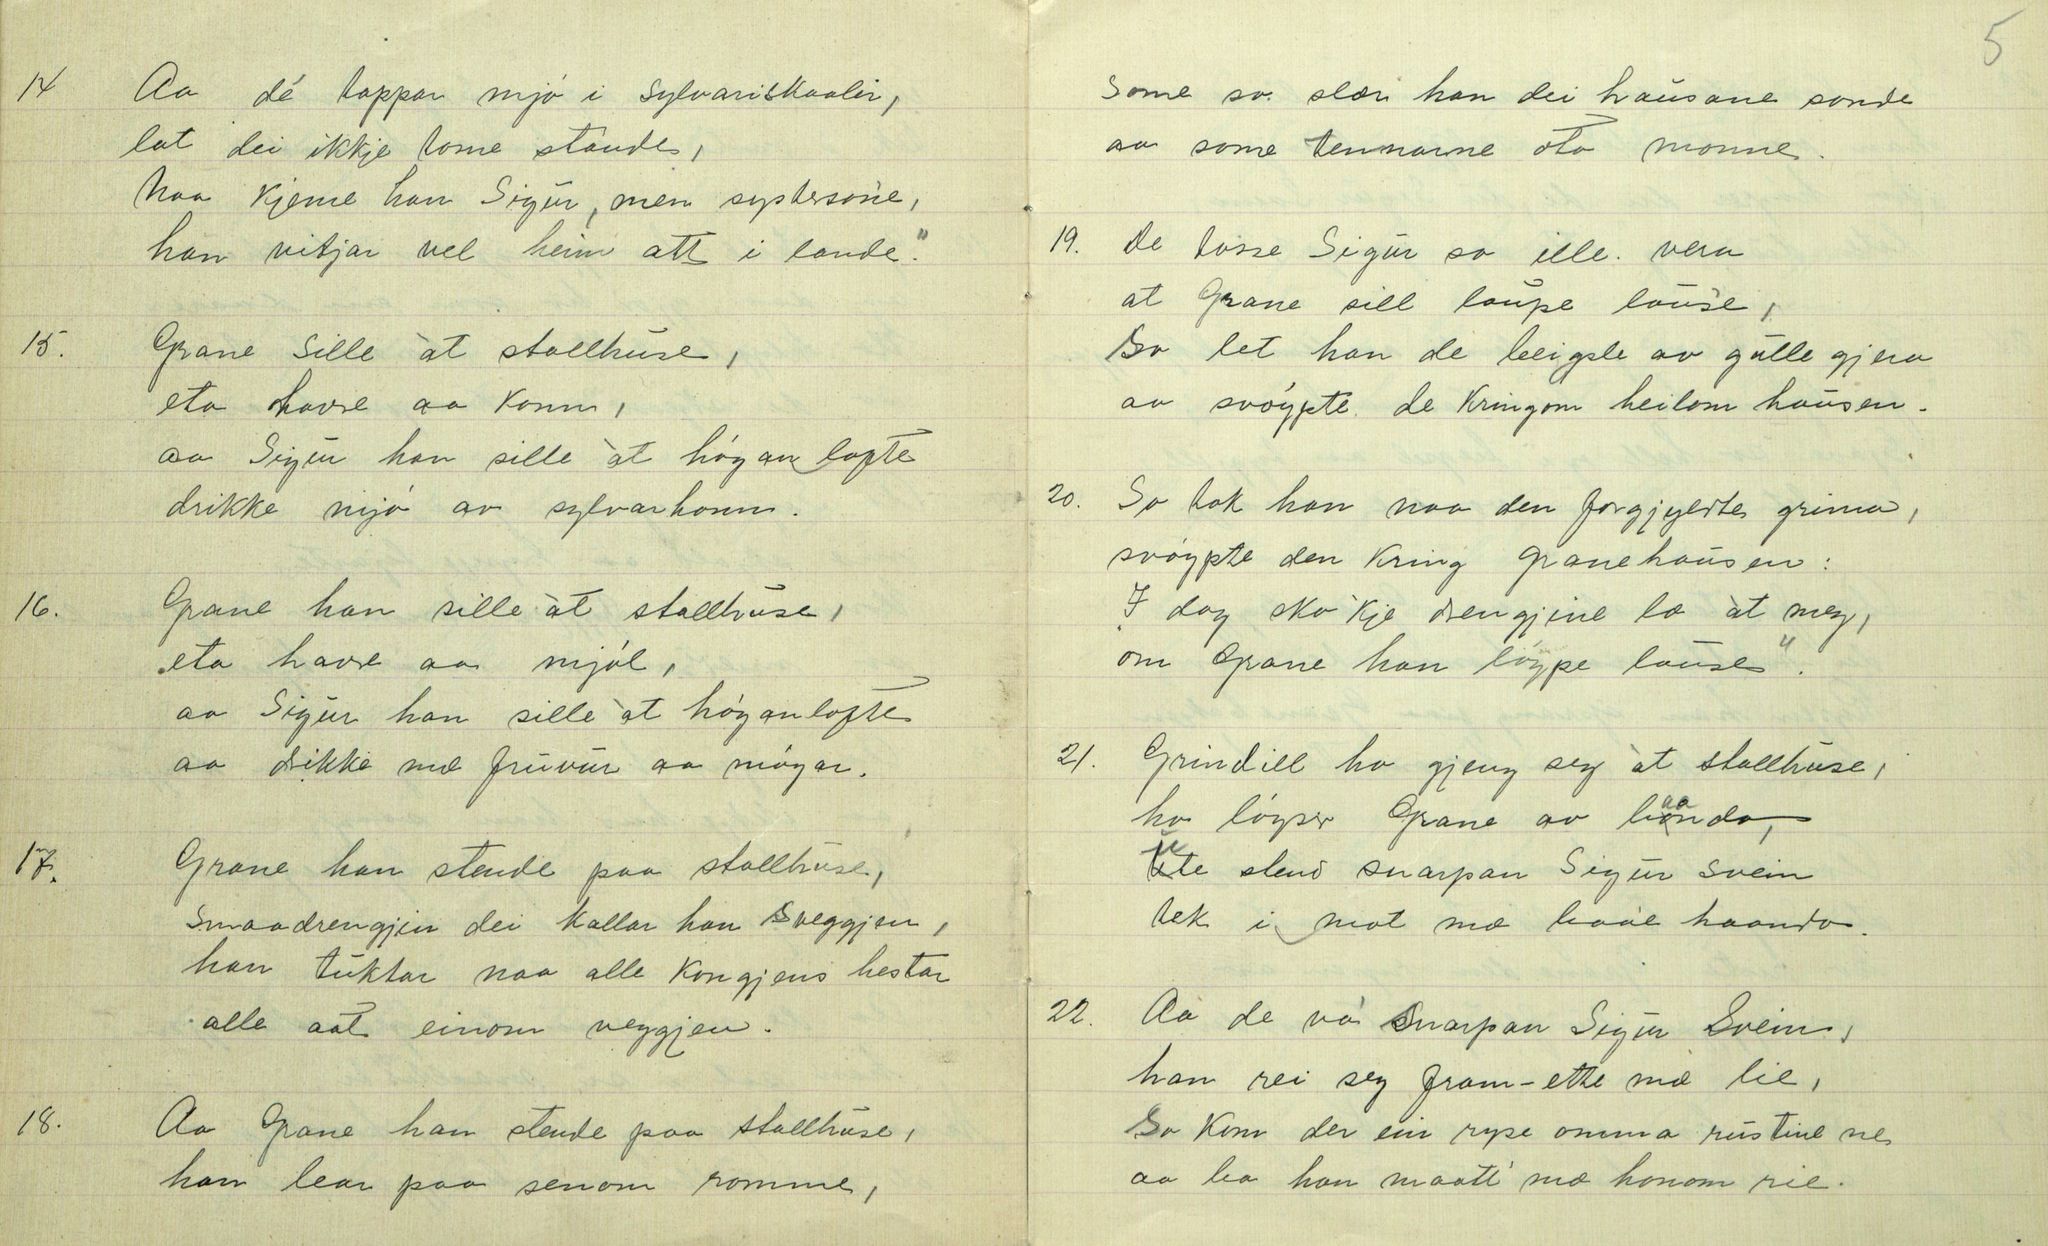 14 Aa dé tappar mjó i sylvariskaalir,
lat dei ikkje tome stande,
naa kjeme han Sigur, men systersone,
han vitjar vel heim att i lande."
15. Grane sille àt stallhuse,
eta havre aa konn,
aa Sigur han sille àt högan lofte
drikke mjó av sylvarhonn.
16. Grane han sille àt stallhuse,
eta havre aa mjól,
aa Sigur han sille àt höganlofte
aa drikke mæ fruvur aa móyar.
17. Grane han stende paa stallhuse,
smaadrengjin dei kallar han Sveggjen,
han tuktar naa alle kongjens hestar
alle aat einom veggjen.
18. Aa Grane han stende paa stallhuse,
han lear paa senom romme,
5
some so slær han dei hausane sonde
aa some tennarne óta monne.
19. De tosse Sigur so ille vera
at Grane sill laupe lause,
So let han de beigsle av gulle gjera
aa svóypte de kringom heilom hausen.
20. So tok han naa den forgjyldte grima,
svóypte den kring Granehausen:
"I dag ska'kje drengjine læ àt meg,
om Grane han lóype lause".
21. Grindill ho gjeng seg àt stallhuse,
ho lóyser Grane av baanda,
Ute stend snarpan Sigur svein
tek i mot mæ baae haando.
22. Aa de va Snarpan Sigur Svein,
han rei seg fram-ette mæ lie,
So kom der ein rype omma rustine ne
aa ba han maatt' mæ honom rie.